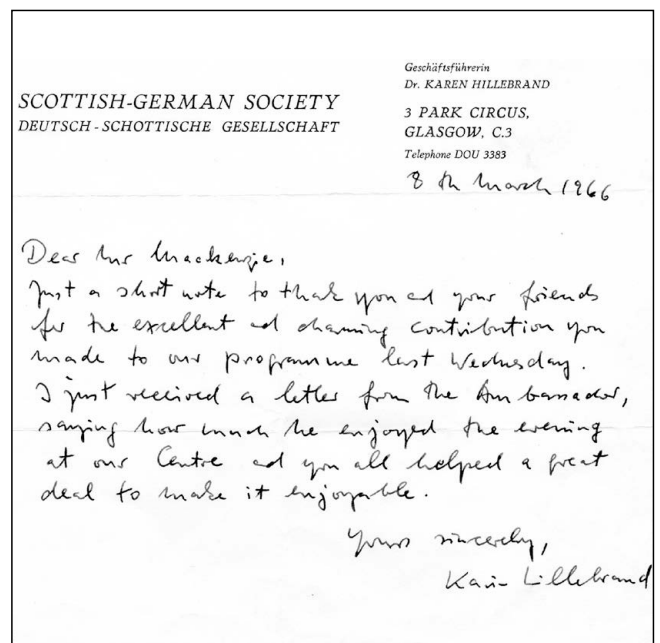 Geschäftsführerin
Dr. KAREN HILLEBRAND
SCOTTISH-GERMAN SOCIETY
DEUTSCH-SCHOTTISCHE GESELLSCHAFT
3 PARK CIRCUS,
GLASGOW, C.3
Telephone DOU 3383
8th March 1966
Dear Mr Mackenzie,
Just a short note to thank you and your friends
for the excellent and charming contribution you
made to our programme last Wednesday.
I just received a letter from the Ambassador,
saying how much he enjoyed the evening
at our Centre and you all helped a great
deal to make it enjoyable.
Yours sincerely,
Karen Hillebrand